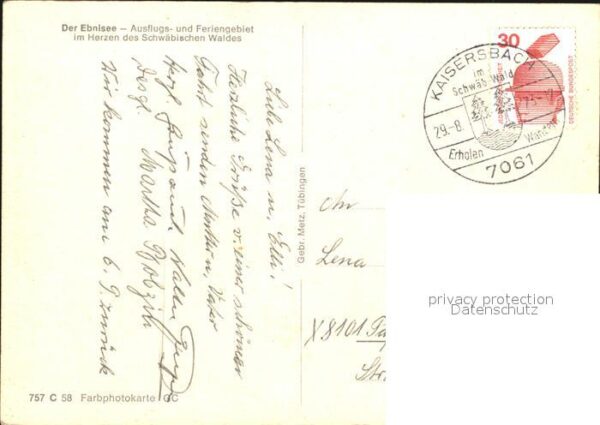 Der Ebnisee – Ausflugs- und Feriengebiet
im Herzen des Schwäbischen Waldes
Liebe Lena u. Elli!
Herzliche Grüße v. einer schönen
Fahrt senden Mutter u. Vater
Herzl.
Desgl. Martha
Wir kommen am 6. 9. zurück
757 C 58 Farbphotokarte CC
Gebr. Metz, Tübingen
30
DEUTSCHE BUNDESPOST
KAISERSBACH
im
Schwäb Wald
29.-8.
Erholen Wandern
7061
An
Lena
X8101
Str.
privacy protection
Datenschutz